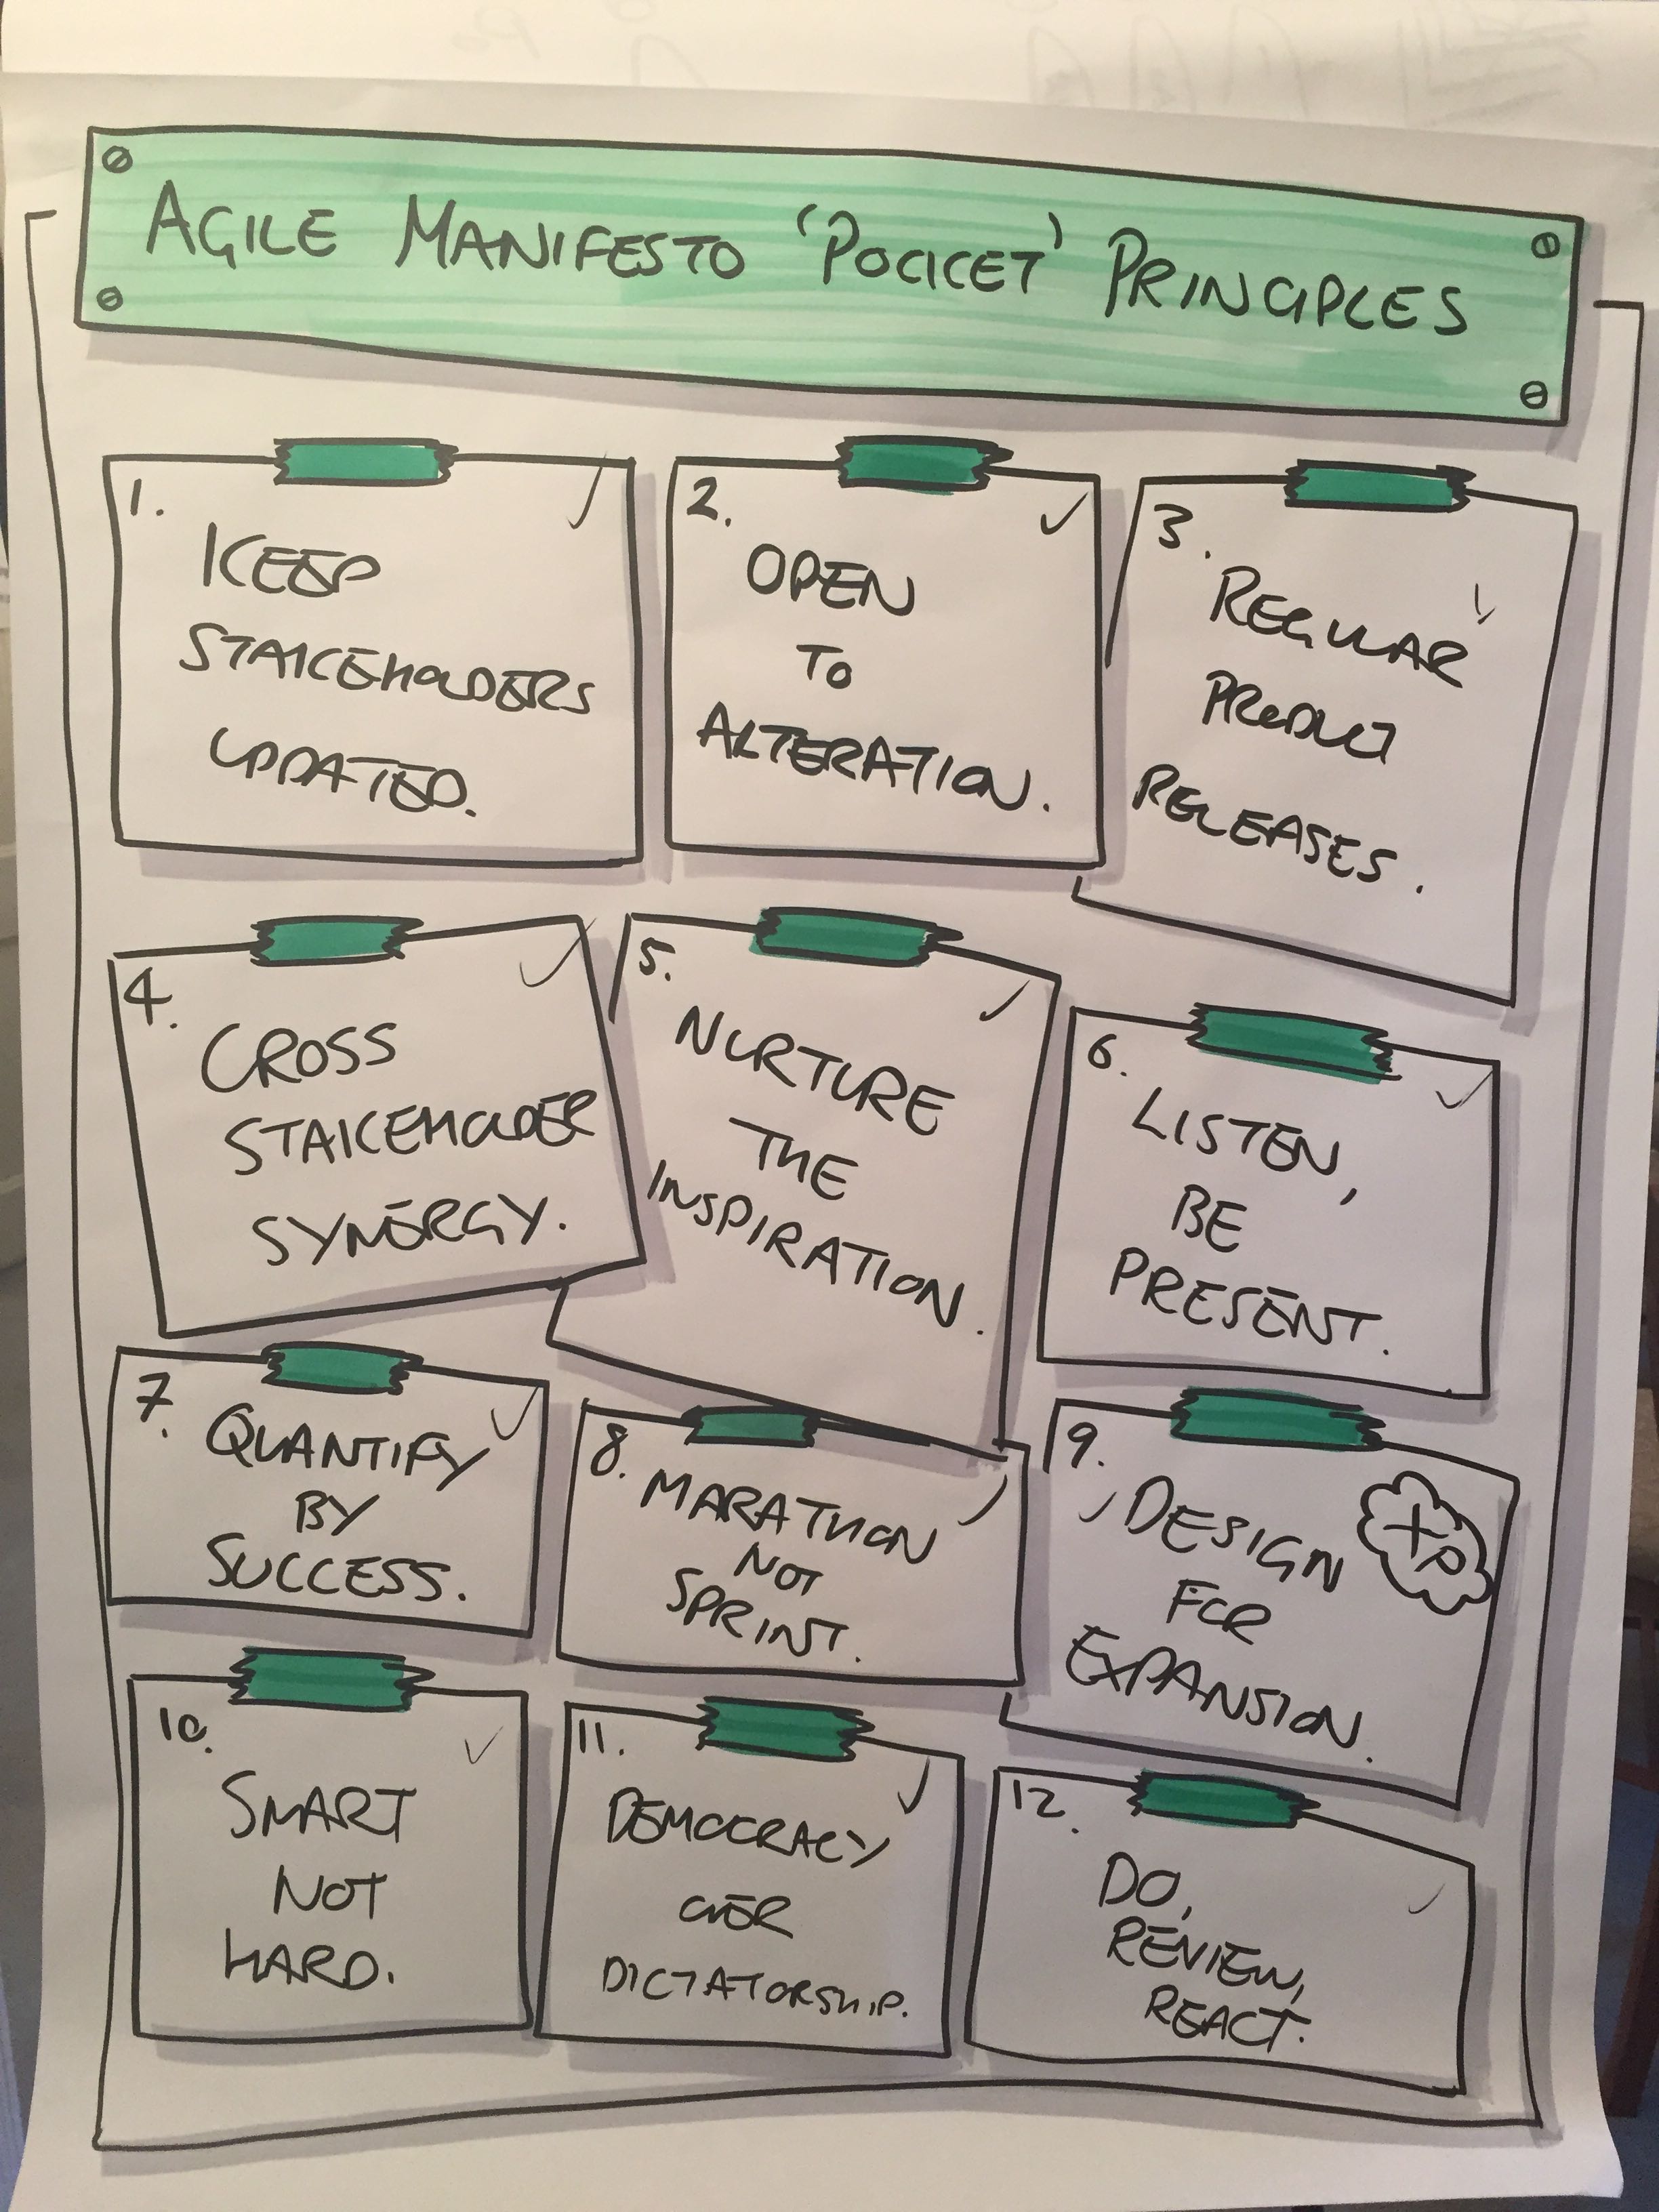 AGILE MANIFESTO 'POCKET' PRINCIPLES
1.
KEEP
STAKEHOLDERS
UPDATED.
2.
OPEN
TO
ALTERATION.
3.
REGULAR
PRODUCT
RELEASES.
4.
CROSS
STAKEHOLDER
SYNERGY.
5.
NURTURE
THE
INSPIRATION.
6.
LISTEN,
BE
PRESENT.
7.
QUANTIFY
BY
SUCCESS.
8.
MARATHON
NOT
SPRINT.
9.
DESIGN
FOR
EXPANSION.
XP
10.
SMART
NOT
HARD.
11.
DEMOCRACY
OVER
DICTATORSHIP.
12.
DO,
REVIEW,
REACT.